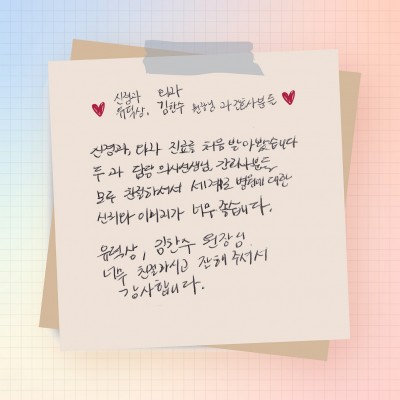 신경과 타과
유덕상, 김찬수 원장님과 간호사분들
신경과, 타과 진료를 처음 받아봤습니다
두 과 담당 의사선생님, 간호사분들
모두 친절하셔서 세계로 병원에 대한
신뢰와 이미지가 너무 좋습니다.
유덕상, 김찬수 원장님
너무 친절하시고 잘해 주셔서
감사합니다.